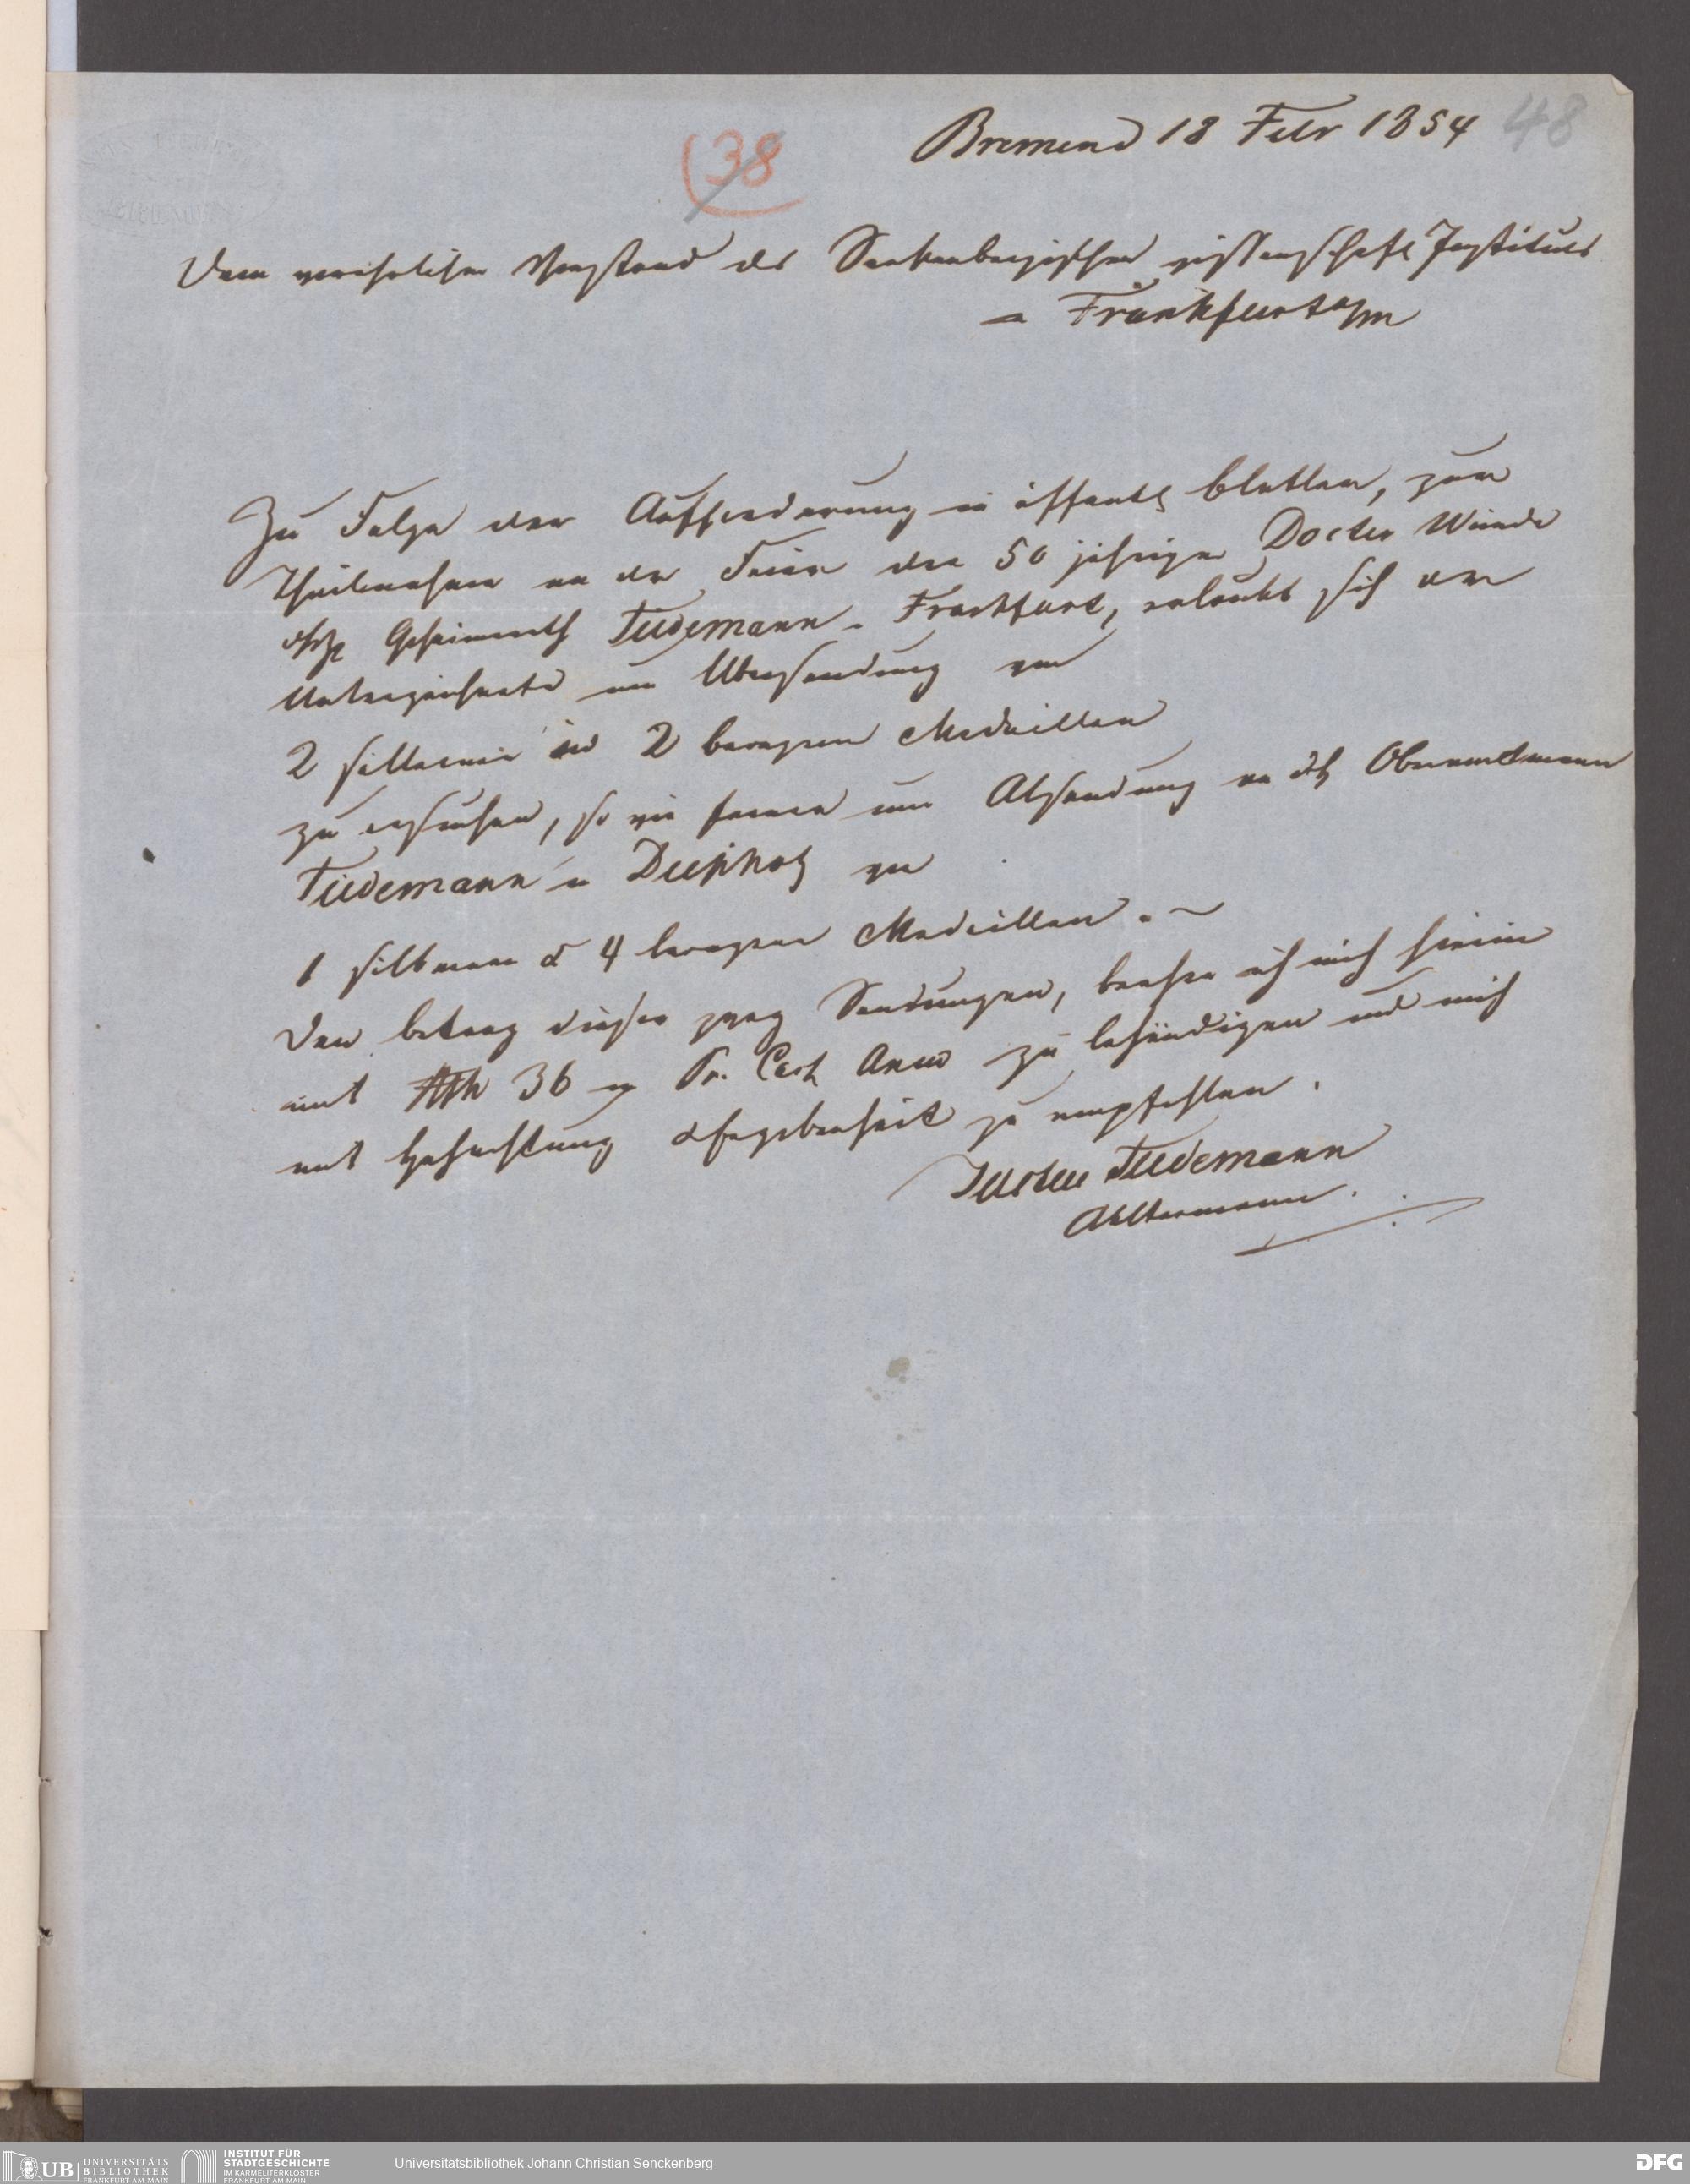 48
(38
Bremen 18 Febr 1854
Dem verehrlichen Vorstand des Senkenbergischen wissenschaftl Instituts
Frankfurt a/m
Zu Folge der Aufforderung in öffentl Blättern, zur
Theilnahme an der Feier der 50 jährigen Doctor Würde
Geheimrath Tiedemann Frankfurt, erlaubt sich der
Unterzeichnete um Übersendung von
2 silberne und 2 bronzene Medaillen
zu ersuchen, so wie ferner um Absendung an Oberamtmann
Tiedemann in Diepholz von
1 silberne & 4 bronzene Medaillen.
Den Betrag dieser zwey Sendungen, beehre ich mich hierin
mit 36 Pr. zu behändigen und mich
mit Hochachtung Ergebenheit zu empfehlen.
Justus Tiedemann
Aeltermann.
UB
UNIVERSITÄTS
BIBLIOTHEK
FRANKFURT AM MAIN
INSTITUT FÜR
STADTGESCHICHTE
IM KARMELITERKLOSTER
FRANKFURT AM MAIN
Universitätsbibliothek Johann Christian Senckenberg
DFG